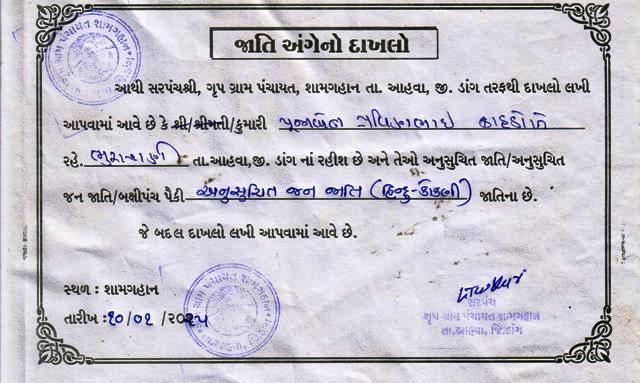 જાતિ અંગેનો દાખલો
આથી સરપંચશ્રી, ગૃપ ગ્રામ પંચાયત, શામગહાન તા. આહવા, જી. ડાંગ તરફથી દાખલો લખી
આપવામાં આવે છે કે શ્રી/શ્રીમતી/કુમારી
રહે. તા.આહવા,જી. ડાંગ નાં રહીશ છે અને તેઓ અનુસુચિત જાતિ/અનુસુચિત
જન જાતિ/બક્ષીપંચ પૈકી અનુસુચિત જન જાતિ (હિન્દુ-કોકણી) જાતિના છે.
જે બદલ દાખલો લખી આપવામાં આવે છે.
સ્થળ : શામગહાન
તારીખ :
સરપંચ
ગૃપ ગ્રામ પંચાયત શામગહાન
તા.આહવા, જિ.ડાંગ